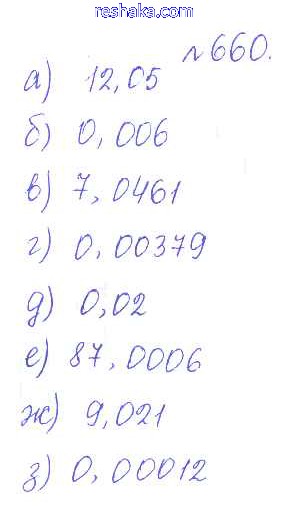 reshaka.com
№660.
а) 12,05
б) 0,006
в) 7,0461
г) 0,00379
д) 0,02
е) 87,0006
ж) 9,021
з) 0,00012